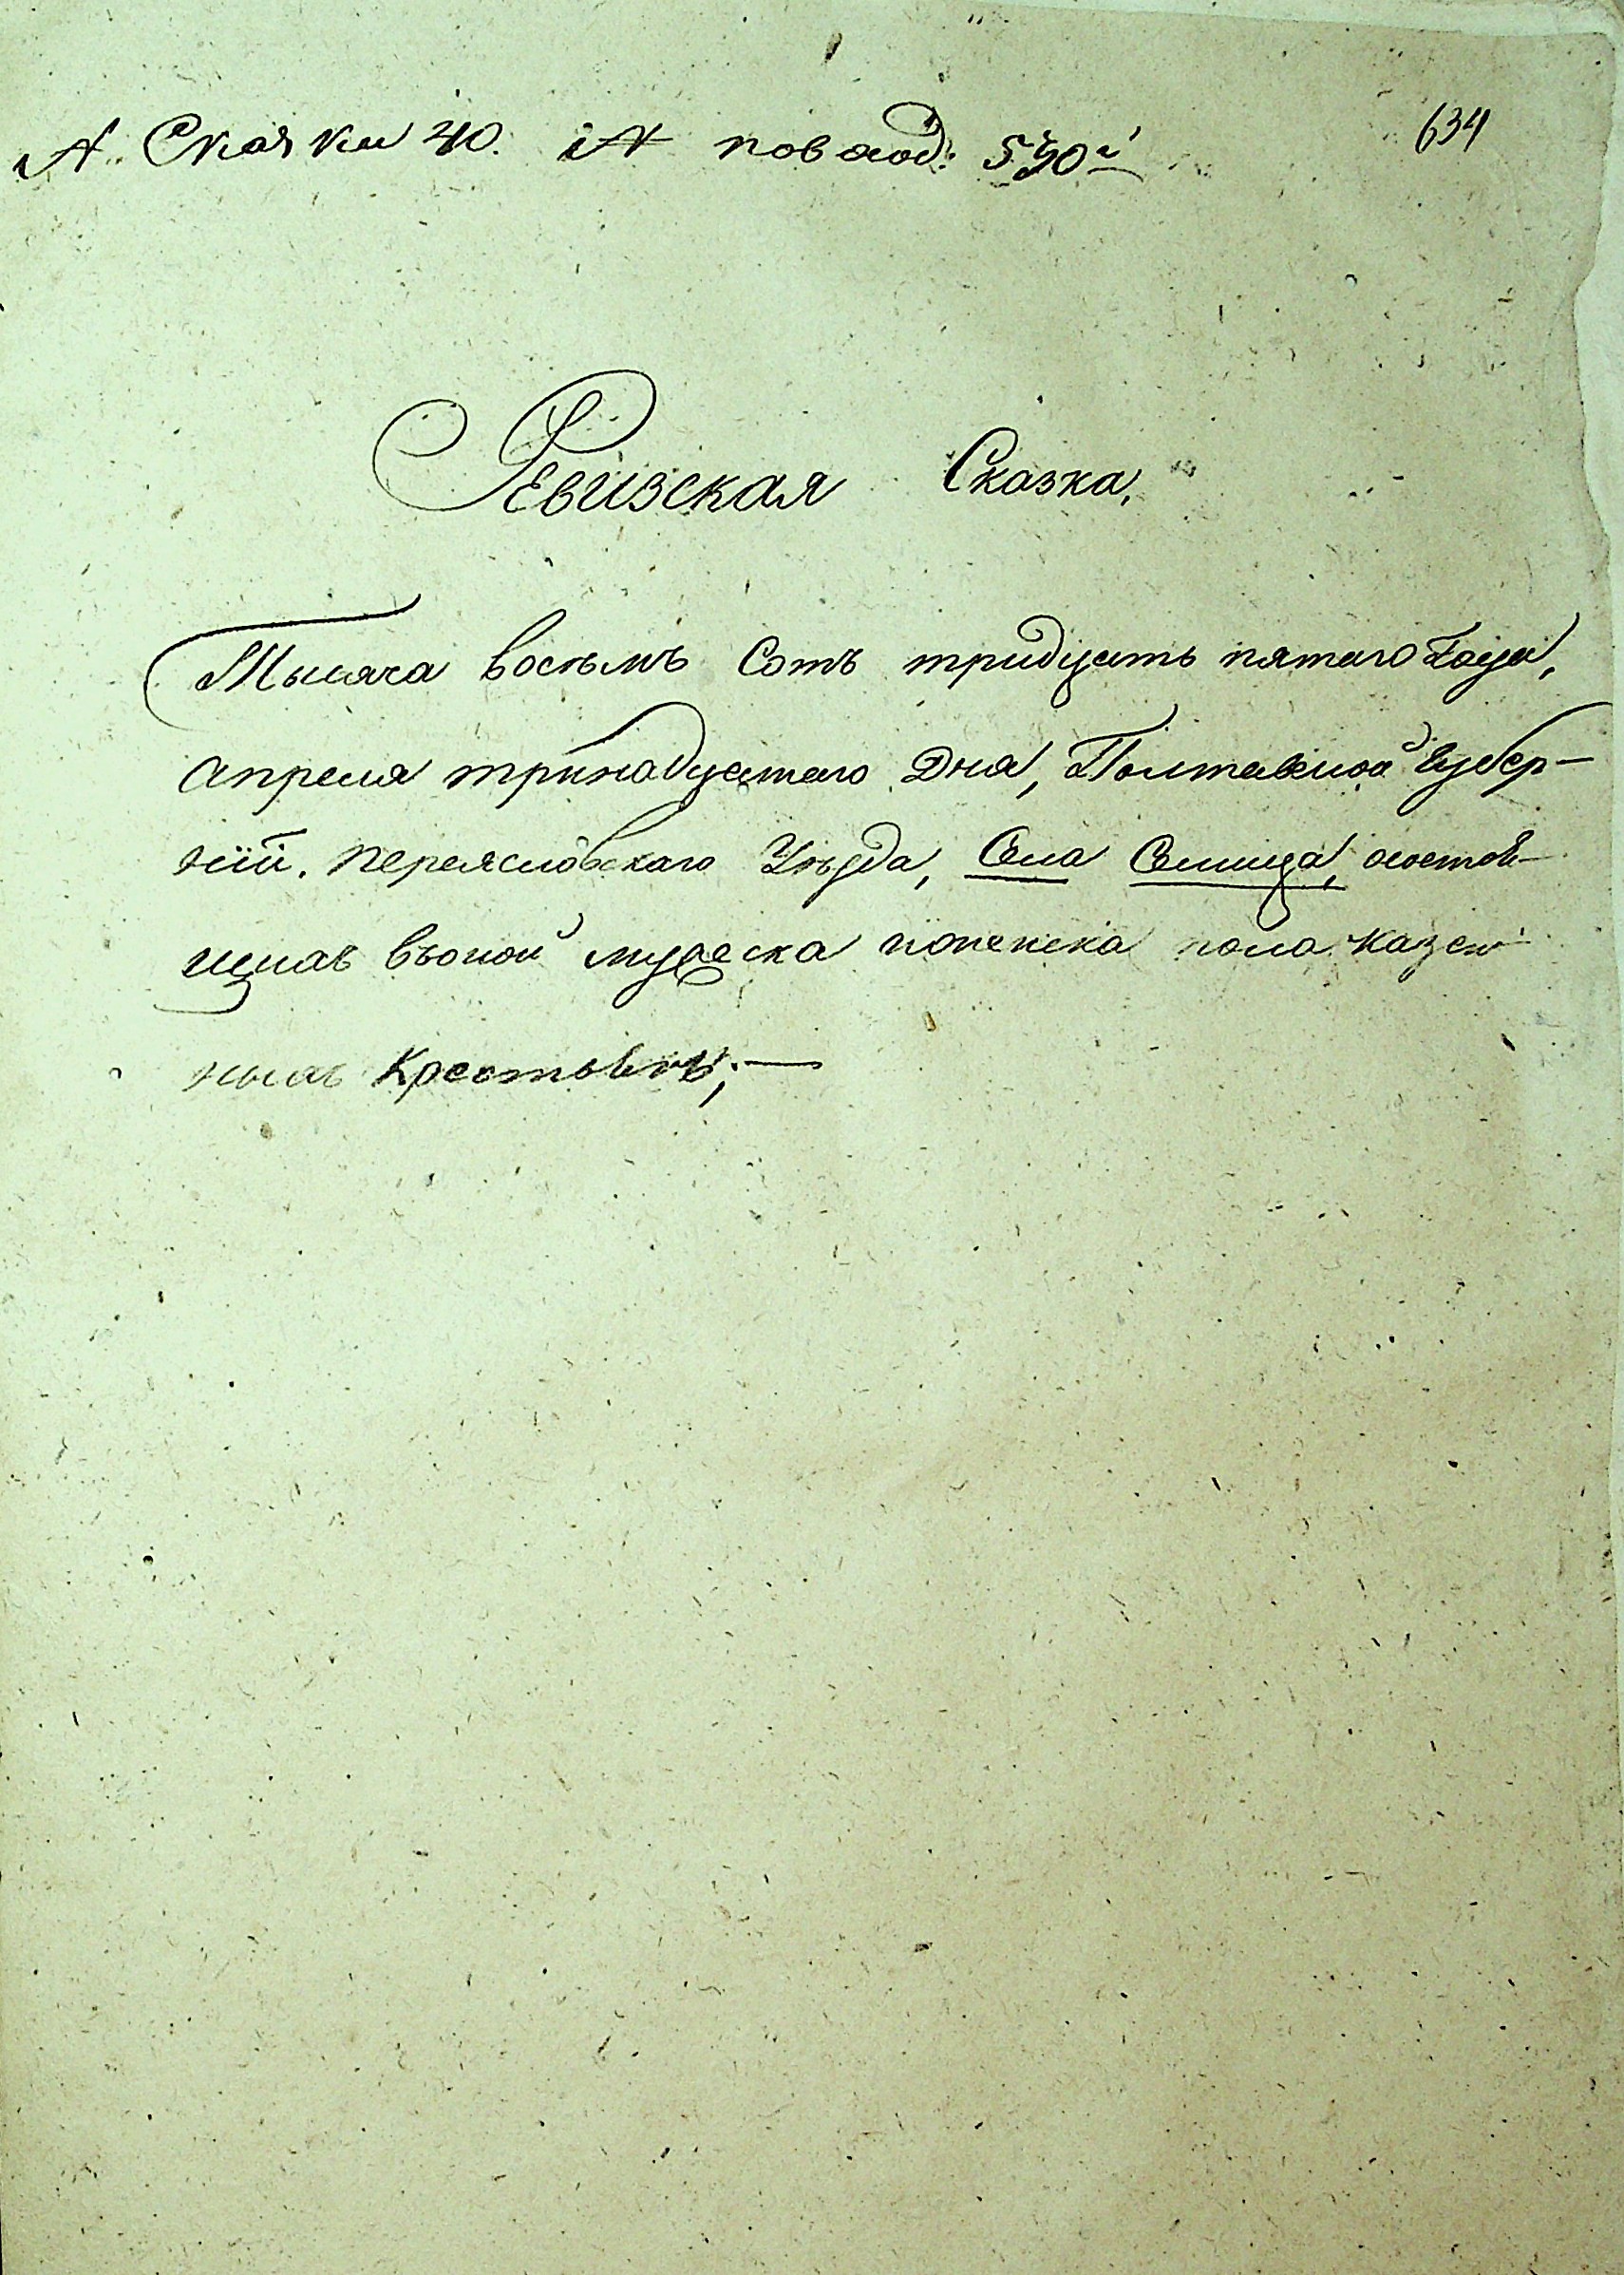 № Сказки 40. № повход: 590й
634
Ревизская Сказка,
Тысяча восемь сотъ тридцать пятаго Года,
Апреля тринадцатаго Дня, Полтавской Губер-
нїй. Переясловскаго Уѣзда, Села Семица, состоя-
щихъ въоной мужеска иженска пола казен-
ныхъ Крестьянъ,—